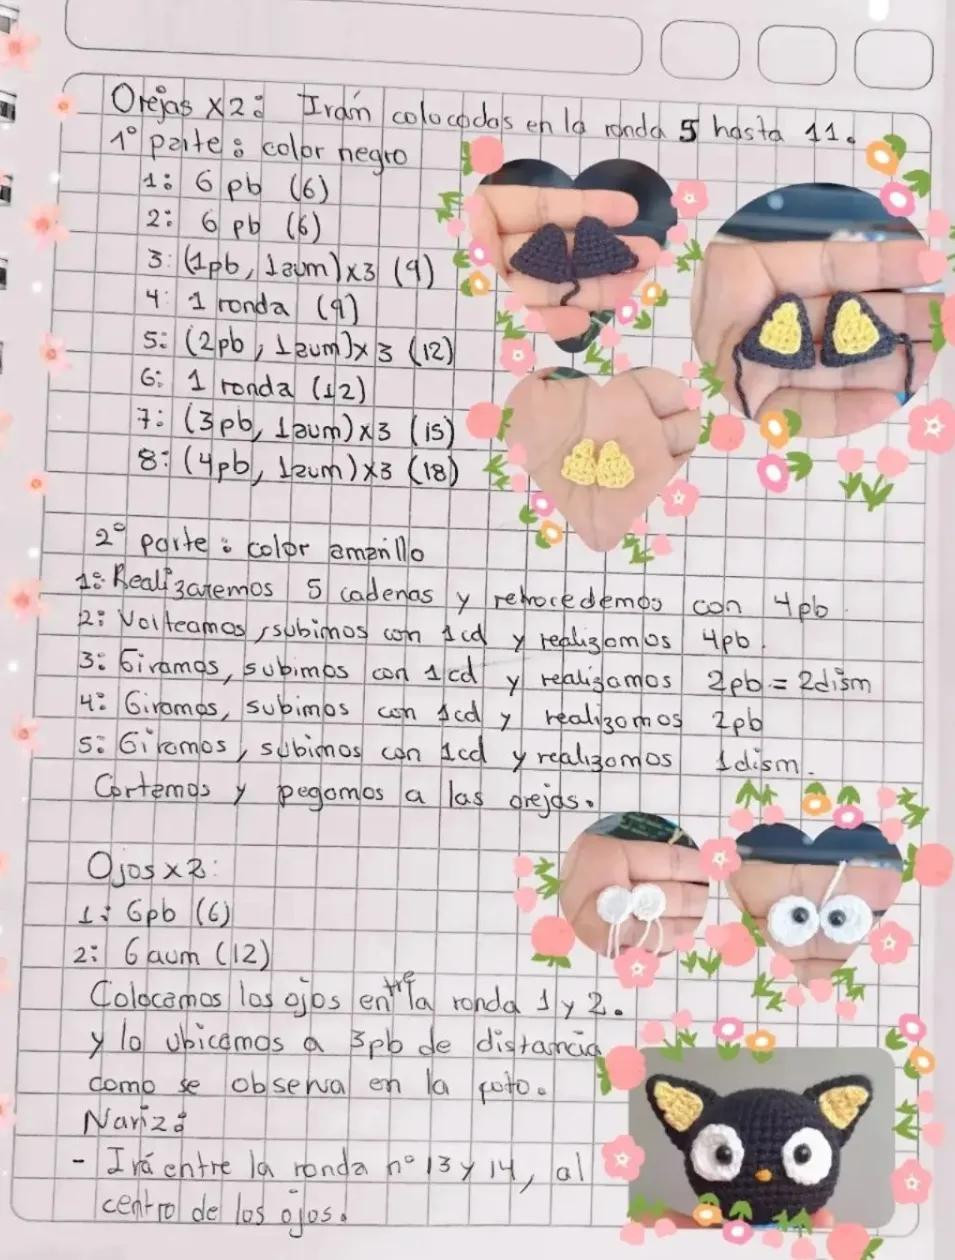 Orejas x2: Irán colocadas en la ronda 5 hasta 11.
1° parte: color negro
1: 6 pb (6)
2: 6 pb (6)
3: (1pb, 1aum)x3 (9)
4: 1 ronda (9)
5: (2pb, 1aum)x3 (12)
6: 1 ronda (12)
7: (3pb, 1aum)x3 (15)
8: (4pb, 1aum)x3 (18)
2° parte: color amarillo
1: Realizaremos 5 cadenas y retrocedemos con 4pb.
2: Volteamos, subimos con 1cd y realizamos 4pb.
3: Giramos, subimos con 1cd y realizamos 2pb = 2dism
4: Giramos, subimos con 1cd y realizamos 2pb
5: Giramos, subimos con 1cd y realizamos 1dism.
Cortamos y pegamos a las orejas.
Ojos x2:
1: 6pb (6)
2: 6 aum (12)
Colocamos los ojos entre la ronda 1 y 2.
y lo ubicamos a 3pb de distancia
como se observa en la foto.
Nariz:
- Irá entre la ronda n° 13 y 14, al
centro de los ojos.